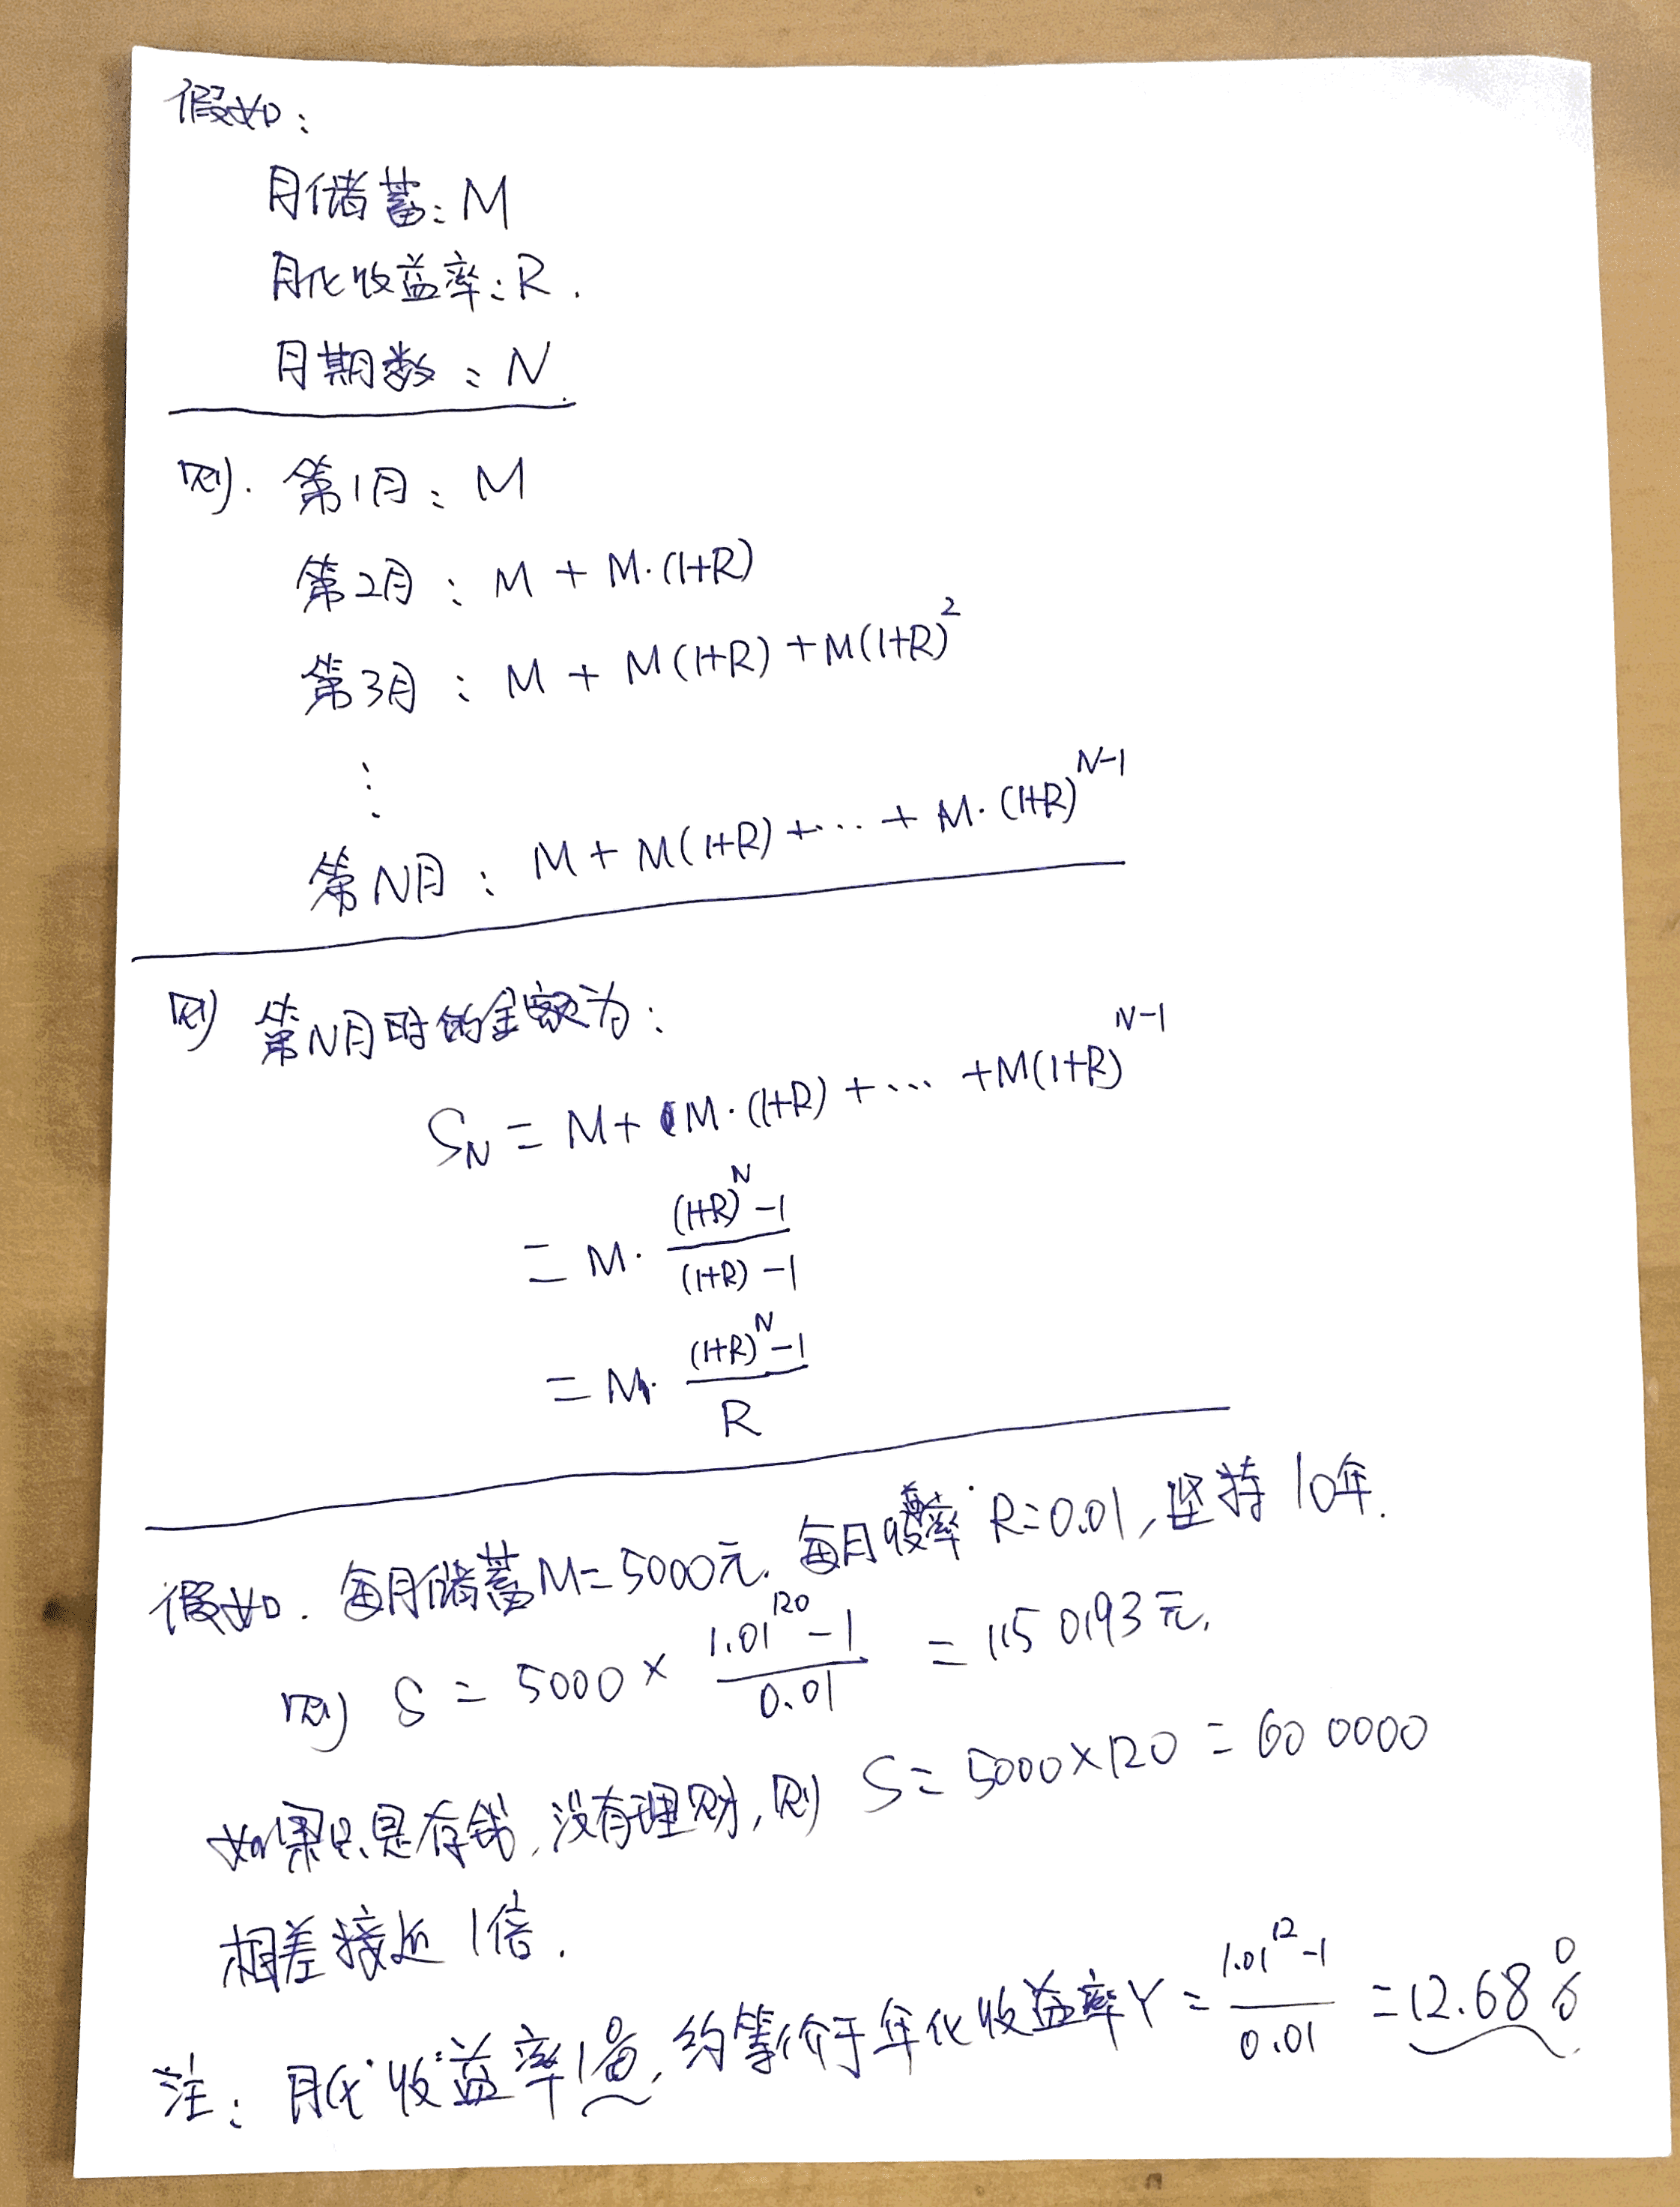 假如:
月储蓄: M
月化收益率: R.
月期数: N.
则. 第1月: M
第2月: M + M·(1+R)
第3月: M + M(1+R) + M(1+R)^2
⋮
第N月: M + M(1+R) + ··· + M·(1+R)^{N-1}
则 第N月时的金额为:
S_N = M + M·(1+R) + ··· + M(1+R)^{N-1}
= M· \frac{(1+R)^N - 1}{(1+R) - 1}
= M· \frac{(1+R)^N - 1}{R}
假如. 每月储蓄M=5000元. 每月收益率R=0.01, 坚持10年.
则 S = 5000 × \frac{1.01^{120} - 1}{0.01} = 115 0193元.
如果只是存钱, 没有理财, 则 S = 5000×120 = 60 0000
相差接近1倍.
注: 月化收益率1%, 约等价于年化收益率Y = \frac{1.01^{12} - 1}{0.01} = 12.68%